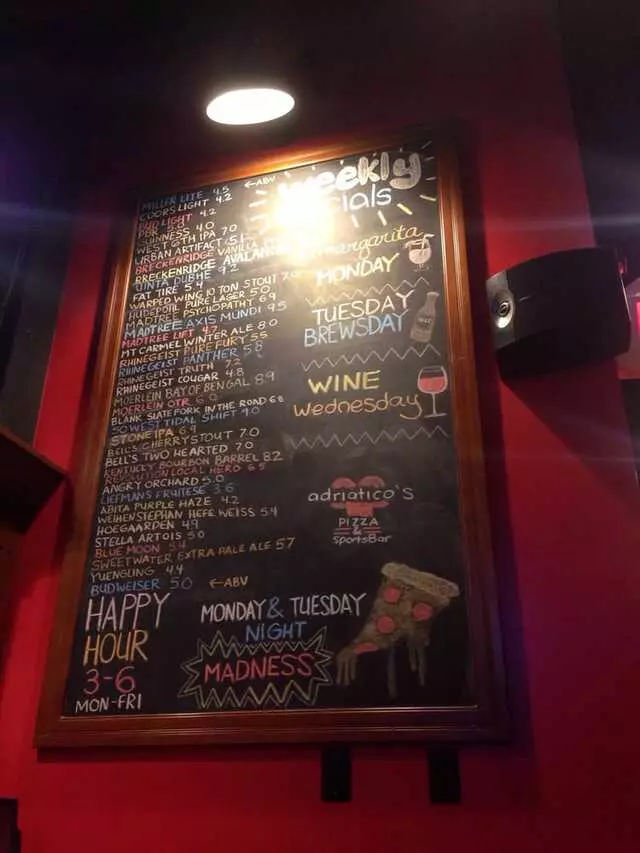 MILLER LITE 4.5 ←ABV
COORS LIGHT 4.2
BUD LIGHT 4.2
PBR 5.0
GUINNESS 4.0
WEST 6TH IPA 7.0
URBAN ARTIFACT 5.1
BRECKENRIDGE VANILLA
BRECKENRIDGE AVALANCHE
UINTA DUBHE 9.2
FAT TIRE 5.4
WARPED WING 10 TON STOUT 7.0
HUDEPOHL PURE LAGER 5.0
MADTREE PSYCHOPATHY 6.9
MADTREE AXIS MUNDI 9.5
MADTREE LIFT 4.7
MT CARMEL WINTER ALE 8.0
RHINEGEIST PURE FURY 5.5
RHINEGEIST PANTHER 5.8
RHINEGEIST TRUTH 7.2
RHINEGEIST COUGAR 4.8
MOERLEIN BAY OF BENGAL 8.9
MOERLEIN OTR 6.0
BLANK SLATE FORK IN THE ROAD 6.8
50 WEST TIDAL SHIFT 9.0
STONE IPA 6.9
BELL'S CHERRY STOUT 7.0
BELL'S TWO HEARTED 7.0
KENTUCKY BOURBON BARREL 8.2
REVOLUTION LOCAL HERO 6.5
ANGRY ORCHARD 5.0
LIEFMANS FRUITESE 3.6
ABITA PURPLE HAZE 4.2
WEIHENSTEPHAN HEFE WEISS 5.4
HOEGAARDEN 4.9
STELLA ARTOIS 5.0
BLUE MOON 5.4
SWEETWATER EXTRA PALE ALE 5.7
YUENGLING 4.4
BUDWEISER 5.0 ←ABV
HAPPY
HOUR
3-6
MON-FRI
weekly
margarita
MONDAY
TUESDAY
BREWSDAY
WINE
Wednesday
adriatico's
PIZZA
&
SportsBar
MONDAY & TUESDAY
NIGHT
MADNESS